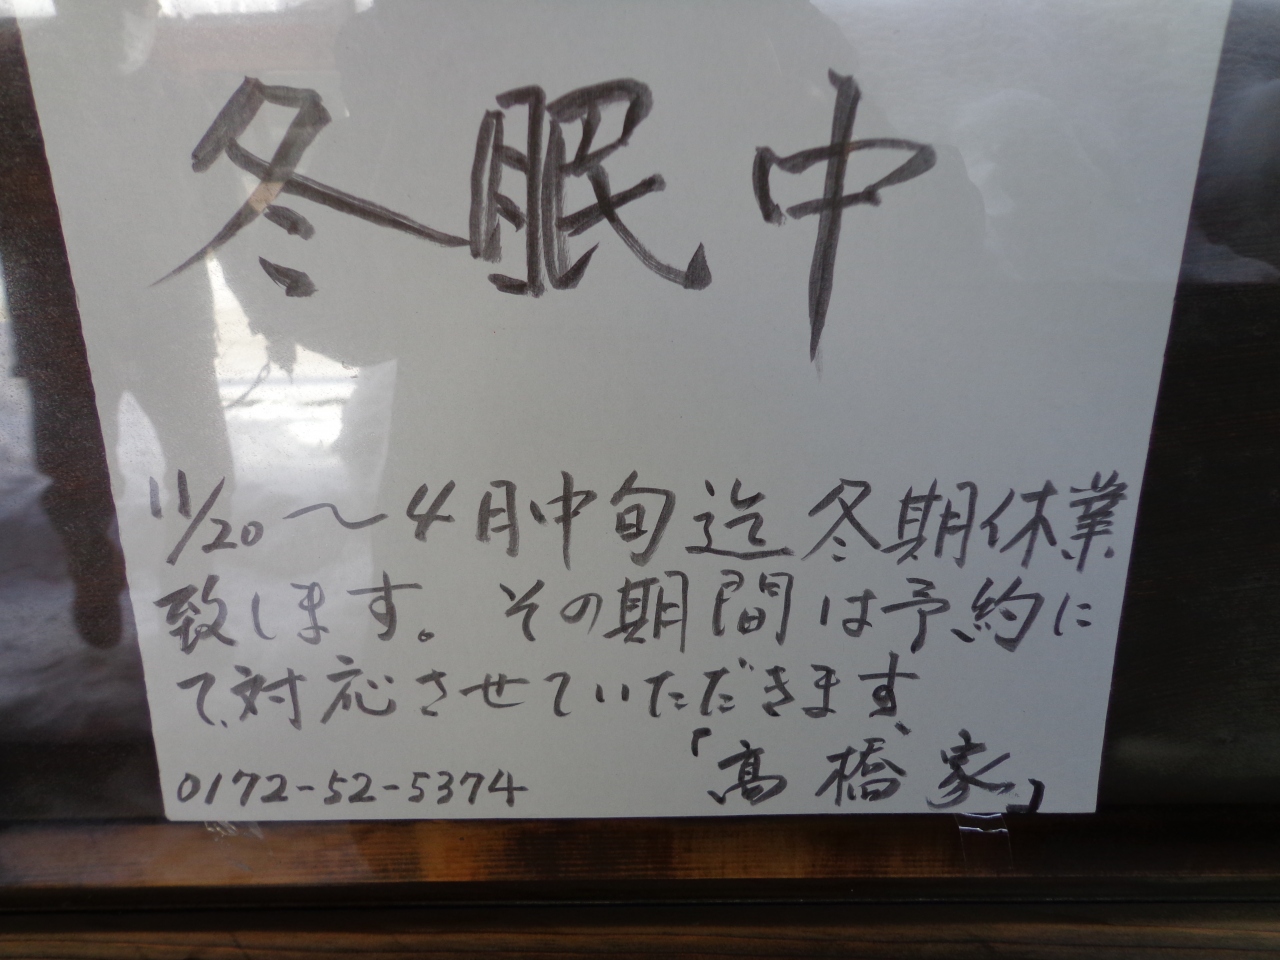 冬眠中
11/20〜4月中旬迄冬期休業
致します。その期間は予約に
て対応させていただきます、
0172-52-5374 「髙橋家」